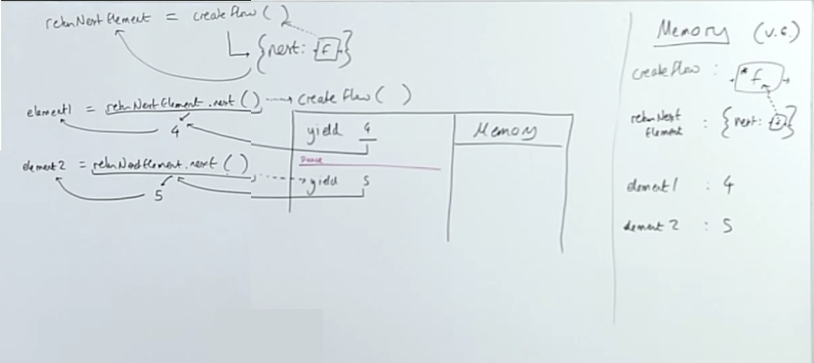 returnNextElement = createFlow ( )
{next: f }
element1 = returnNextElement.next ( ) createFlow ( )
4
yield 4
Pause
element2 = returnNextElement.next ( )
yield 5
5
Memory
Memory (v.e.)
createFlow : *f
returnNext
Element : {next: f }
element1 : 4
element2 : 5